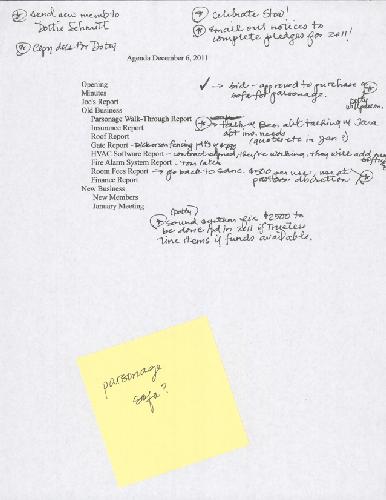 send new memb to
Dottie Schmitt
Celebrate Stow!
email out notices to
complete pledges for 2011!
Copy desc for Dotty
Agenda December 6, 2011
Opening
Minutes
Joe's Report
Old Business
Parsonage Walk-Through Report
Insurance Report
Roof Report
Gate Report - Dickerson fencing
HVAC Software Report - contract signed, they're working. They will add
Fire Alarm System Report -
Room Fees Report → go back to same. $500 per use, use at
discretion
Finance Report
New Business
New Members
January Meeting
✓ → bids - approved to purchase a
sofa for parsonage.
Dotty
ins. needs
(quotes etc in Jan?)
(Dotty)
sound system fix $2500 to
be done in 2011 if Trustee
line items if funds available.
parsonage
sofa?